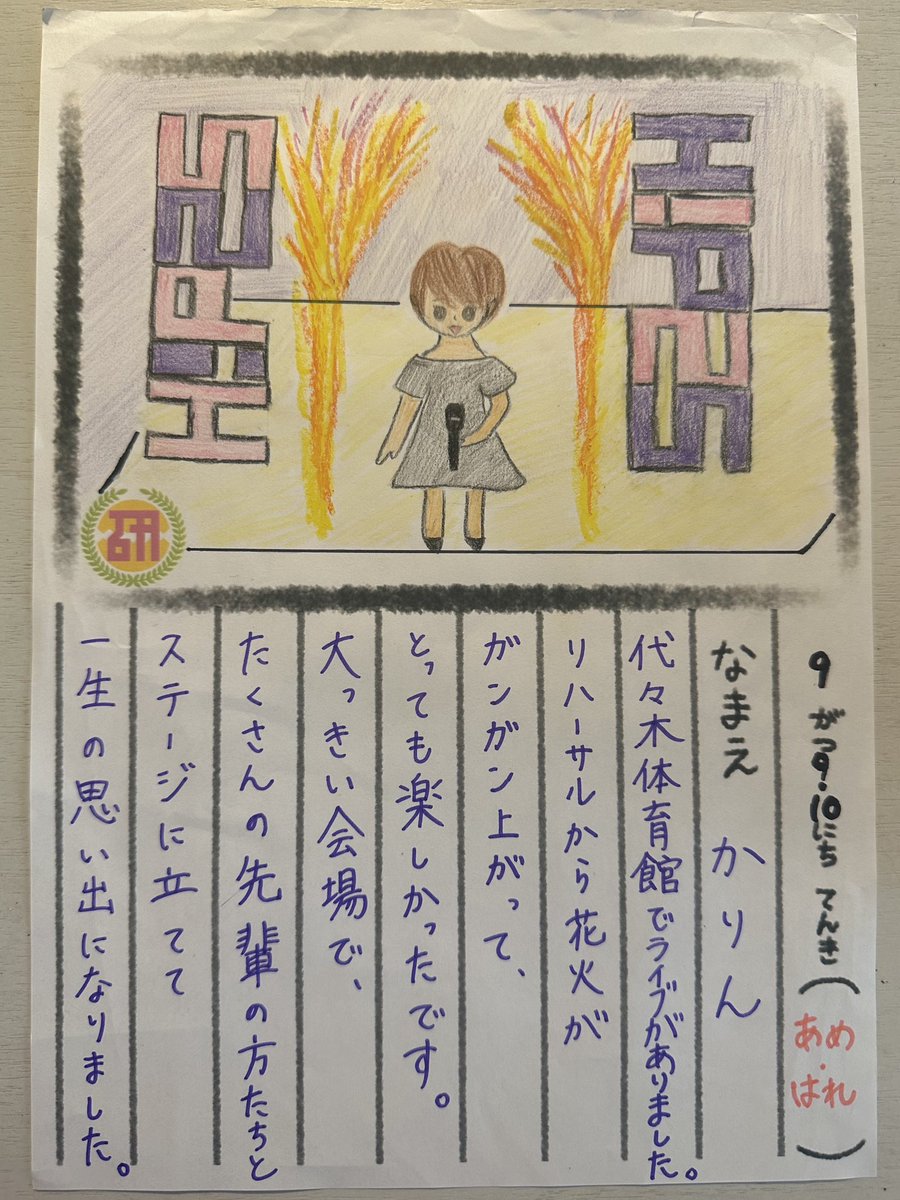 HiPES
HiPES
研
9がつ9・10にち てんき(あめ・はれ)
なまえ かりん
代々木体育館でライブがありました。
リハーサルから花火が
ガンガン上がって、
とっても楽しかったです。
大っきい会場で、
たくさんの先輩の方たちと
ステージに立てて
一生の思い出になりました。